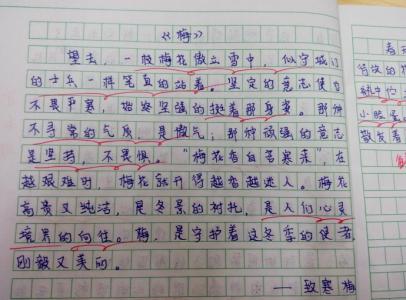 《梅》
望去,一枝梅花傲立雪中,似守城门
的士兵一样笔直的站着。坚定的意志使它
不畏严寒,始终坚强的挺着那身姿。那种
不寻常的气质,是傲气;那种顽强的意志
是坚持,不畏惧。“梅花香自苦寒来”,在
越艰难时,梅花就开得越香越迷人。梅花
高贵又纯洁,是冬景的衬托,是人们心灵
境界的向往。梅,是守护着这冬季的使者,
刚毅又美丽。
——致寒梅